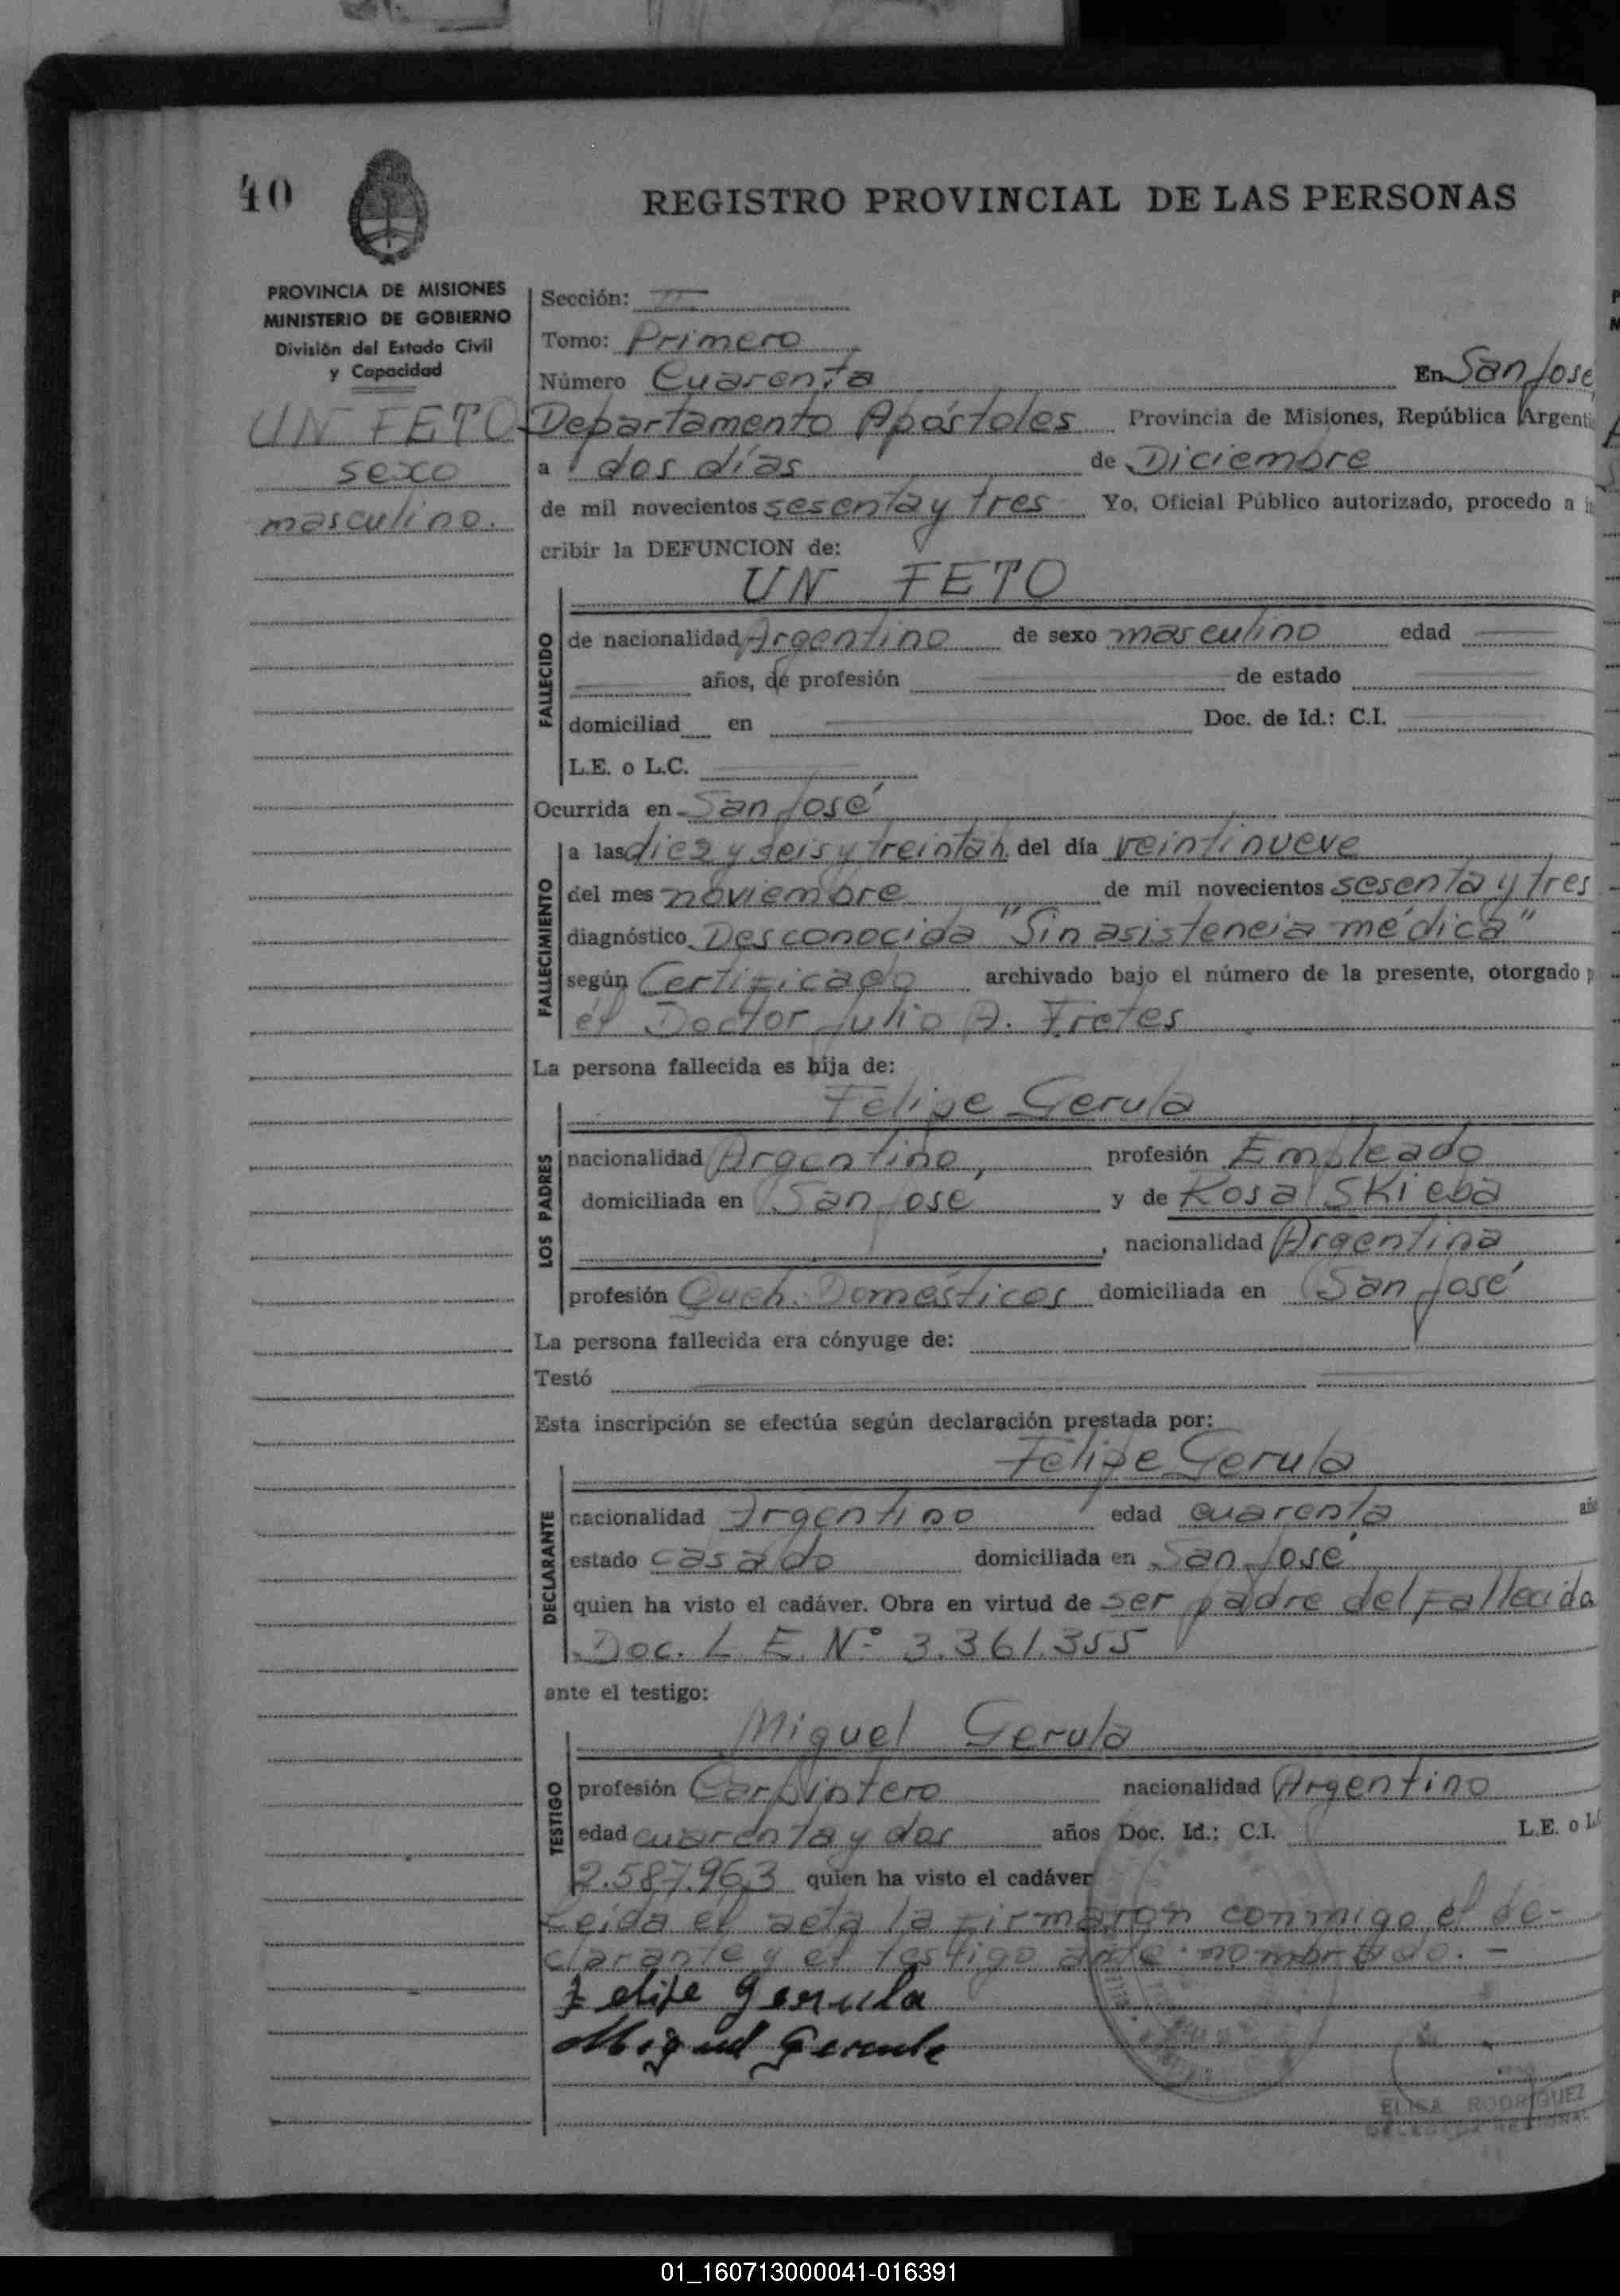 40
REGISTRO PROVINCIAL DE LAS PERSONAS
PROVINCIA DE MISIONES
MINISTERIO DE GOBIERNO
División del Estado Civil
y Capacidad
UN FETO
sexo
masculino.
Sección: II
Tomo: Primero
Número Cuarenta En San José
Departamento Apóstoles Provincia de Misiones, República Argenti
a dos días de Diciembre
de mil novecientos sesenta y tres Yo, Oficial Público autorizado, procedo a
cribir la DEFUNCION de:
UN FETO
FALLECIDO
de nacionalidad Argentino de sexo masculino edad
años, de profesión de estado
domiciliad en Doc. de Id.: C.I.
L.E. o L.C.
Ocurrida en San José
FALLECIMIENTO
a las diez y seis y treinta h. del día veintinueve
del mes noviembre de mil novecientos sesenta y tres
diagnóstico Desconocida "Sin asistencia médica"
según Certificado archivado bajo el número de la presente, otorgado p
el Doctor Julio A. Fretes
La persona fallecida es hija de:
Felipe Gerula
LOS PADRES
nacionalidad Argentino, profesión Empleado
domiciliada en San Jose y de Rosa Skieba
, nacionalidad Argentina
profesión Queh. Domésticos domiciliada en San José
La persona fallecida era cónyuge de:
Testó
Esta inscripción se efectúa según declaración prestada por:
Felipe Gerula
DECLARANTE
nacionalidad Argentino edad cuarenta añ
estado casado domiciliada en San José
quien ha visto el cadáver. Obra en virtud de ser padre del Fallecido
Doc. L. E. Nº 3.361.355
ante el testigo:
Miguel Gerula
TESTIGO
profesión Carpintero nacionalidad Argentino
edad cuarenta y dos años Doc. Id.: C.I. L.E. o L
2.587.963 quien ha visto el cadáver
Leida el acta la firmaron conmigo el de-
clarante y el testigo ante nombrado. -
Felipe Gerula
Miguel Gerula
ELISA RODRIGUEZ
DELEGADA REGIONAL
01_160713000041-016391